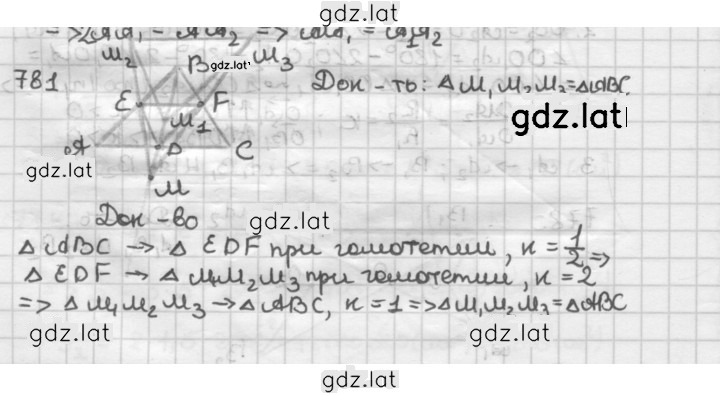 gdz.lat
M₂ B gdz.lat M₃
781 Док-ть: Δ M₁M₂M₃=ΔABC.
E F
M₁ gdz.lat
A D C
gdz.lat
M
Док-во gdz.lat
Δ ABC → Δ EDF при гомотетии, к = 1/2 =>
Δ EDF → Δ M₁M₂M₃ при гомотетии, к = 2
=> Δ M₁M₂M₃ → Δ ABC, к = 1 => Δ M₁M₂M₃ = Δ ABC
gdz.lat gdz.lat
gdz.lat